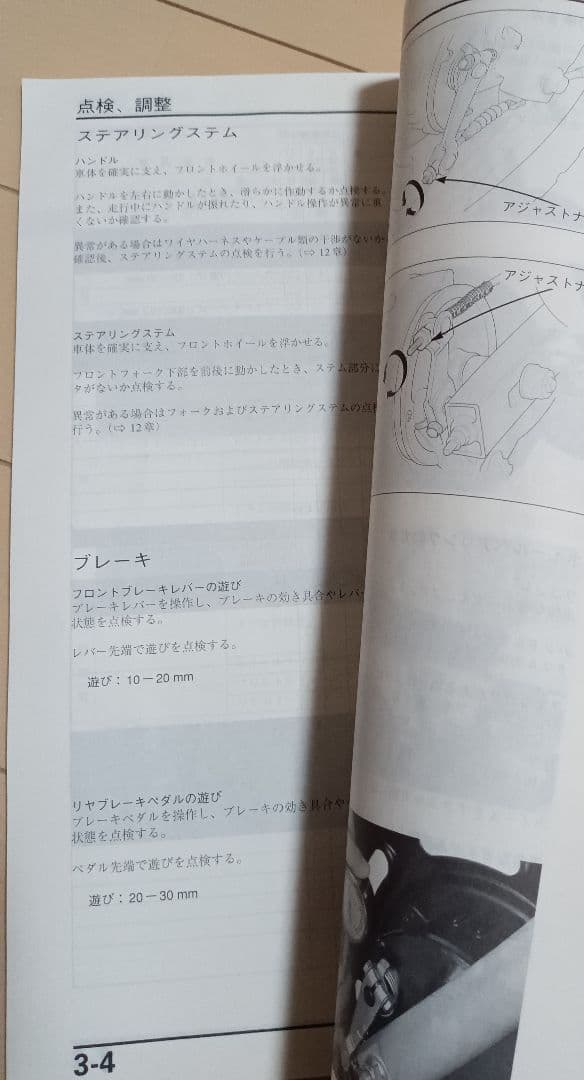 点検、調整
ステアリングステム
ハンドル
車体を確実に支え、フロントホイールを浮かせる。
ハンドルを左右に動かしたとき、滑らかに作動するか点検する。
また、走行中にハンドルが振れたり、ハンドル操作が異常に重
くないか確認する。
異常がある場合はワイヤハーネスやケーブル類の干渉がないか
確認後、ステアリングステムの点検を行う。(⇨12章)
ステアリングステム
車体を確実に支え、フロントホイールを浮かせる。
フロントフォーク下部を前後に動かしたとき、ステム部分に
タがないか点検する。
異常がある場合はフォークおよびステアリングステムの点検
行う。(⇨12章)
ブレーキ
フロントブレーキレバーの遊び
ブレーキレバーを操作し、ブレーキの効き具合やレバー
状態を点検する。
レバー先端で遊びを点検する。
遊び：10－20 mm
リヤブレーキペダルの遊び
ブレーキペダルを操作し、ブレーキの効き具合や
状態を点検する。
ペダル先端で遊びを点検する。
遊び：20－30 mm
3-4
アジャストナ
アジャストナ